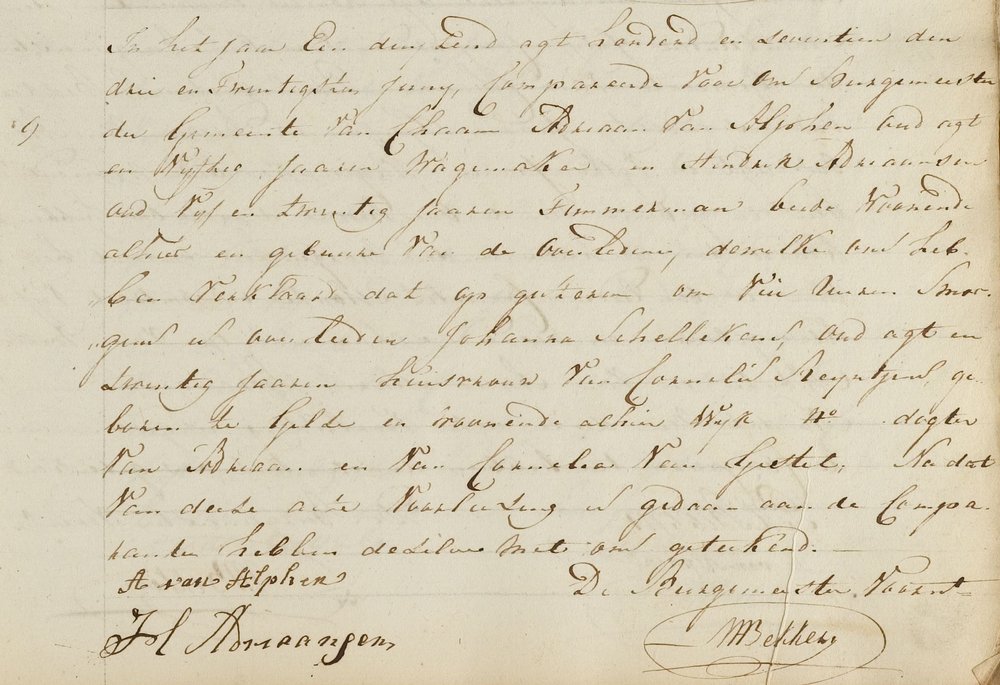 In het Jaar Een duyzend agt honderd en Zeventien den
drie en Twintigsten Juny, Compareerde voor ons Burgemeester
9 der Gemeente van Chaam Adriaan van Alphen oud agt
en Vyftig Jaaren Wagemaker en Hendrik Adriaansen
oud Vyf en twintig Jaaren Timmerman beide Woonende
alhier en gebuure van de overledene, dewelke ons heb-
ben verklaard dat op gisteren om vier uuren Smor-
gens is overleeden Johanna Schellekens oud agt en
twintig Jaaren huisvrouw van Cornelis Reyntjens, ge-
boren te Gilze en woonende alhier Wyk No dogter
van Adriaan en van Cornelia van Gestel. Na dat
van deeze acte voorleezing is gedaan aan de Compa-
ranten hebben dezelve met ons geteekend.
A van Alphen De Burgemeester Voornt
H Adriaangen MBekkers